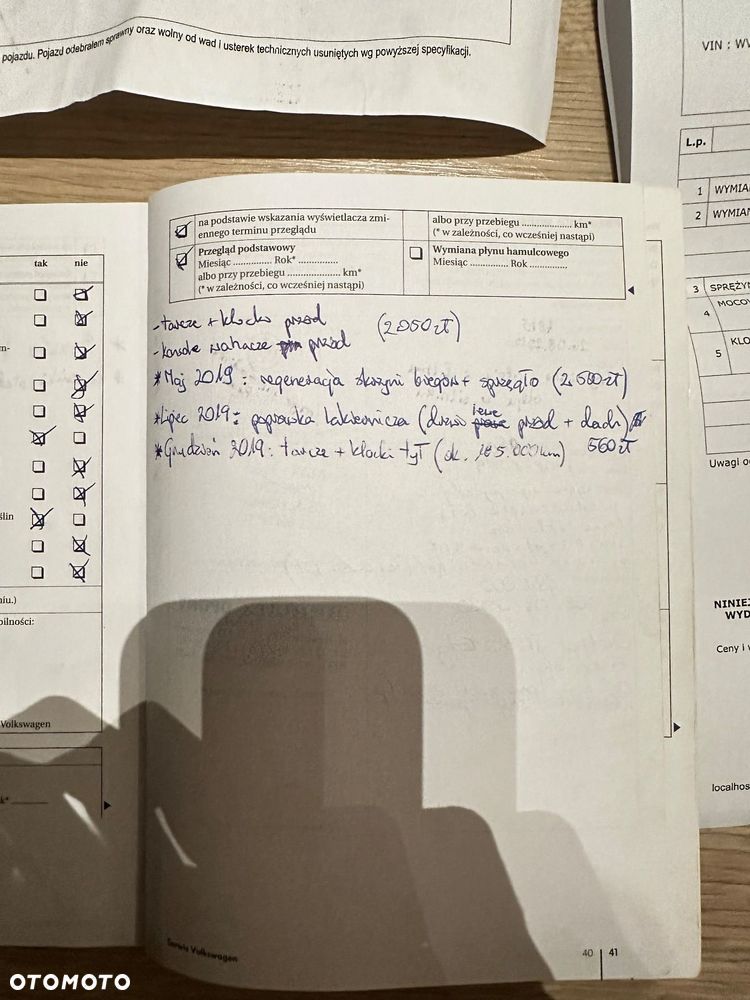 pojazdu. Pojazd odebrałem sprawny oraz wolny od wad i usterek technicznych usuniętych wg powyższej specyfikacji.
VIN : WV
L.p.
1 WYMIAN
2 WYMIAN
3 SPRĘŻYN
4 MOCOW
5 KLO
Uwagi o
NINIEJ
WYD
Ceny i w
localhos
tak nie
ślin
niu.)
bilności:
Volkswagen
k*
na podstawie wskazania wyświetlacza zmi-
ennego terminu przeglądu
albo przy przebiegu .................... km*
(* w zależności, co wcześniej nastąpi)
Przegląd podstawowy
Miesiąc .............. Rok* ..............
albo przy przebiegu .................... km*
(* w zależności, co wcześniej nastąpi)
Wymiana płynu hamulcowego
Miesiąc .............. Rok ..............
- tarcze + klocki przód (2050zł)
- konsole wahacze przód
* Maj 2019 : regeneracja skrzyni biegów + sprzęgło (2.500zł)
* Lipiec 2019 : poprawka lakiernicza (drzwi lewe przód + dach)
* Grudzień 2019 : tarcze + klocki tył (ok. 185.000km) 560zł
Serwis Volkswagen
40 | 41
OTOMOTO